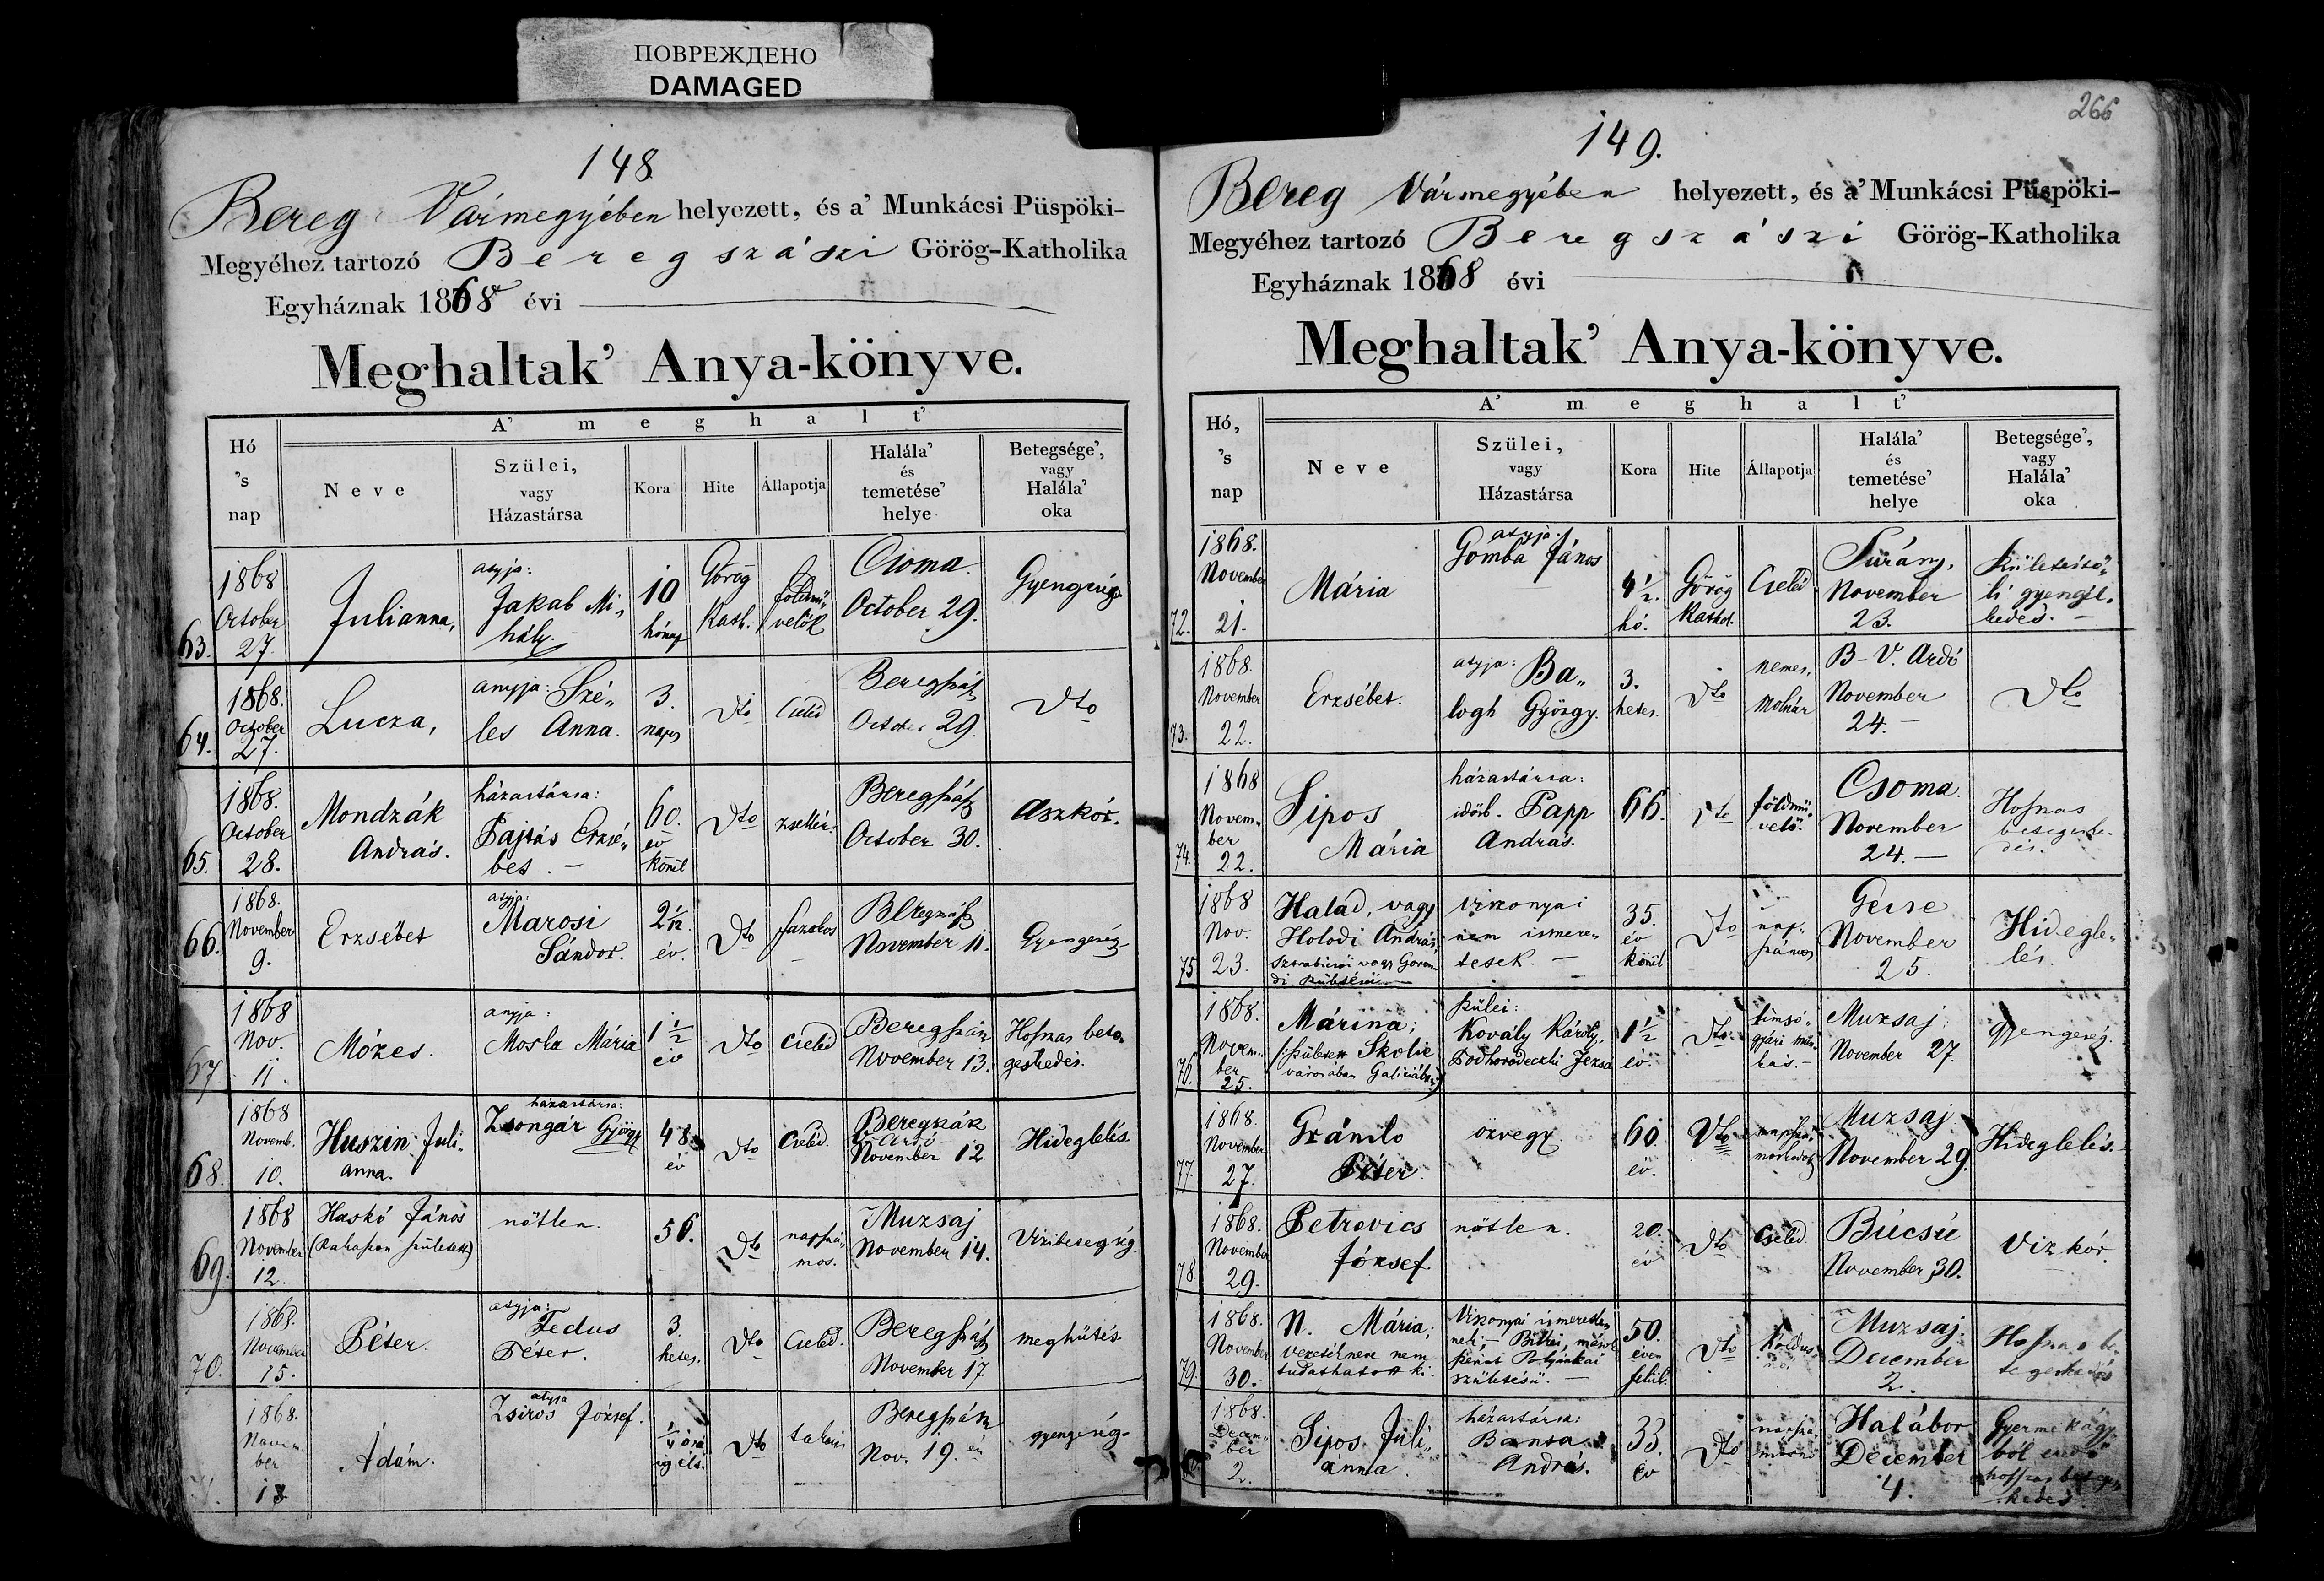 ПОВРЕЖДЕНО
DAMAGED
148
Bereg Vármegyében helyezett, és a' Munkácsi Püspöki-
Megyéhez tartozó Beregszászi Görög-Katholika
Egyháznak 1868 évi
Meghaltak' Anya-könyve.
Hó
's
nap
A' meghalt'
Neve
Szülei,
vagy
Házastársa
Kora
Hite
Állapotja
Halála'
és
temetése'
helye
Betegsége',
vagy
Halála'
oka
63.
1868
October
27.
Julianna,
atyja:
Jakab Mi,
hály.
10
hónap
Görög
Kath.
földmű„
velők
Csoma
October 29.
Gyengeség
64.
1868.
October
27.
Lucza,
anyja: Szé„
les Anna.
3.
napos
Dto
Cseléd
Beregszász
October 29.
Dto
65.
1868.
October
28.
Mondzák
András.
házastársa:
Pajtás Erzsé„
bet.
60.
év
körül
Dto
zsellér
Beregszász
October 30.
Aszkór.
66.
1868.
November
9.
Erzsébet
atyja:
Marosi
Sándor.
2 1/2.
év.
Dto
fazekas
Beregszász
November 11.
Gyengeség
67
1868
Nov.
11.
Mózes.
anyja:
Mosla Mária
1 1/2
év
Dto
cseléd
Beregszász
November 13.
Hosznas bete„
geskedés.
68.
1868
Novemb.
10.
Huszin Juli„
anna.
házastársa:
Zsongár György
48
év
Dto
Cseléd.
Beregszász
V. Ardó
November 12
Hideglelés.
69.
1868
November
12.
Haskó János
nőtlen.
56.
Dto
napszá„
mos.
Muzsaj
November 14.
Vizibetegség
70.
1868.
November
15.
Péter.
atyja:
Fedus
Péter.
3.
hetes.
Dto
Cseléd.
Beregszász
November 17
meghűtés
1868.
Novem
ber
18
Ádám.
atyja
Zsiros József.
1/4 óra
ig élt.
Dto
Beregszász
Nov. 19. én
gyengeség
266
149.
Bereg Vármegyében helyezett, és a' Munkácsi Püspöki-
Megyéhez tartozó Beregszászi Görög-Katholika
Egyháznak 1868 évi
Meghaltak' Anya-könyve.
Hó,
's
nap
A' meghalt'
Neve
Szülei,
vagy
Házastársa
Kora
Hite
Állapotja
Halála'
és
temetése'
helye
Betegsége',
vagy
Halála'
oka
72.
1868.
November
21.
Mária
atyja:
Gomba János
4 1/2.
hó.
Görög
Kathol.
Cseléd
Surány,
November
23.
Születésétő„
li gyengél„
kedés.
73.
1868
November
22.
Erzsébet.
atyja: Ba„
logh György.
3.
hetes.
Dto
nemes,
molnár
B-V. Ardó
November
24.
Dto
74.
1868
Novem„
ber
22.
Sipos
Mária
házastársa:
időrb. Papp
András.
66.
Dto
földmű„
velő.
Csoma
November
24.
Hosznas
betegeske„
dés.
75
1868
Nov.
23.
Halad, vagy
Holodi András,
viszonyai
nem ismere„
tesek.
35.
év
körül
Dto
nap„
számos
Gecse
November
25.
Hidegle„
lés.
76.
1868.
Novem„
ber
25.
Márina;
(született Skolie
városában Galiciában)
szülei:
Kovály Károly,
Podhorodeczki Jezsa
1 1/2
év.
Dto
timsó„
gyári mun
kás.
Muzsaj
November 27.
gyengeség.
77.
1868.
November
27.
Gránilo
Péter.
özvegy.
60.
év.
Dto
Muzsaj
November 29.
Hideglelés.
78.
1868.
November
29.
Petrovics
József.
nőtlen.
20.
év
Dto
Cseléd
Búcsú
November 30.
Viz kór.
79.
1868.
November
30.
N. Mária;
vezetékneve nem
tudathatott ki.
Viszonyai ismeretle„
nek;
születésű.
50.
éven
felül.
Dto
Koldus
nő.
Muzsaj.
December
2.
Hosznas be„
tegeskedés
1868.
Decem„
ber
2.
Sipos Juli„
ánna.
házastársa:
Bansa
András.
33.
év
Dto
Halábor
December
4.
Gyermekágy
ból eredő
hosszas betege„
kedés.